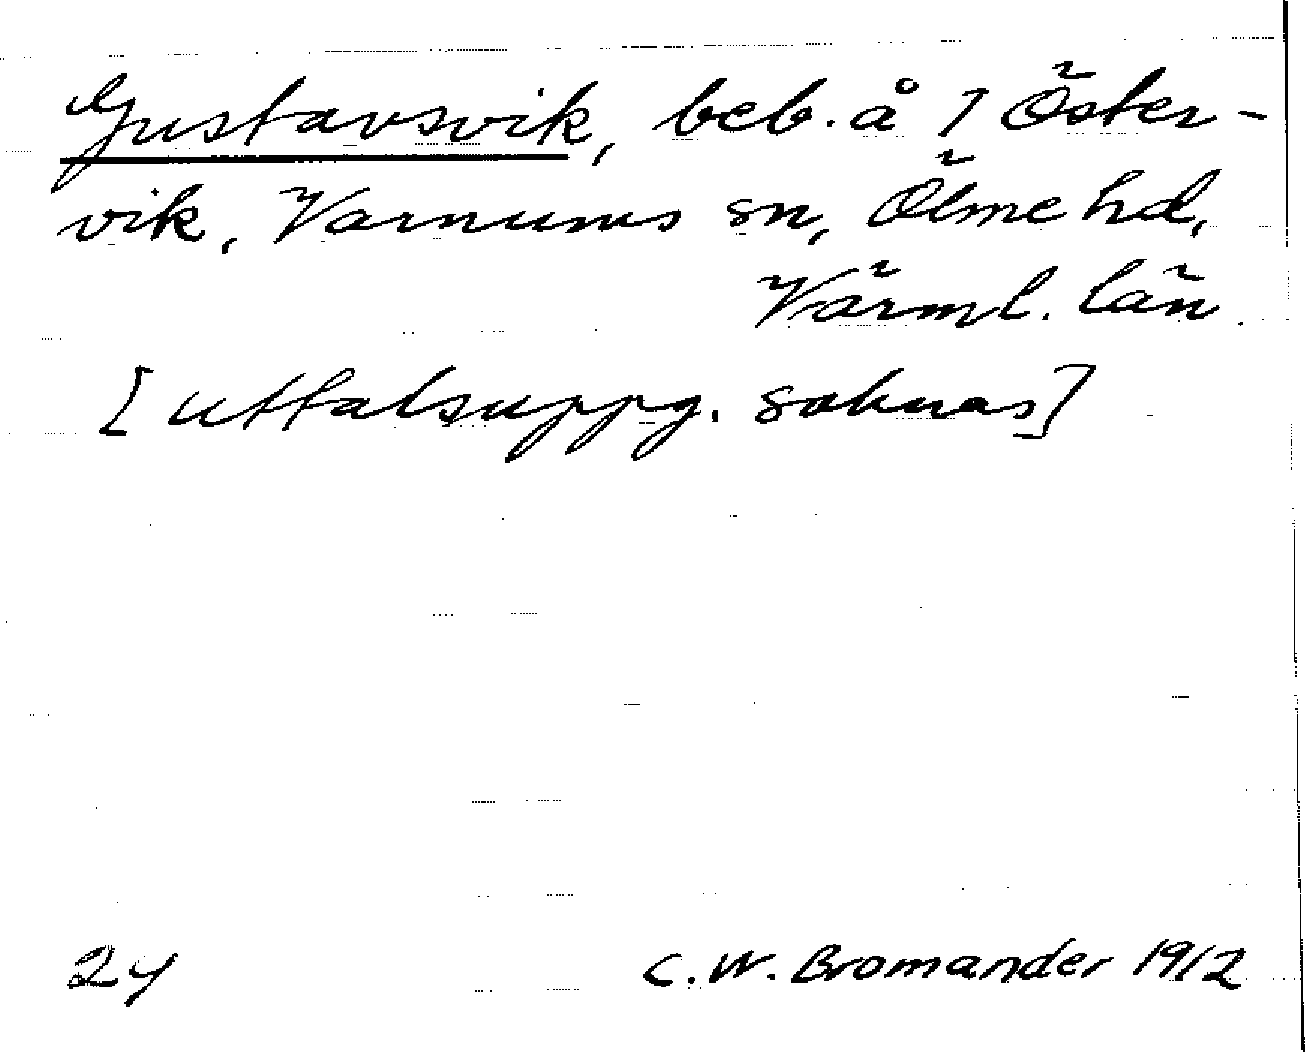 Gustavsvik, beb. å 1 Öster-
vik, Varnums sn, Ölme hd,
Värml. län.
[uttalsuppg. saknas]
24 C. W. Bromander 1912